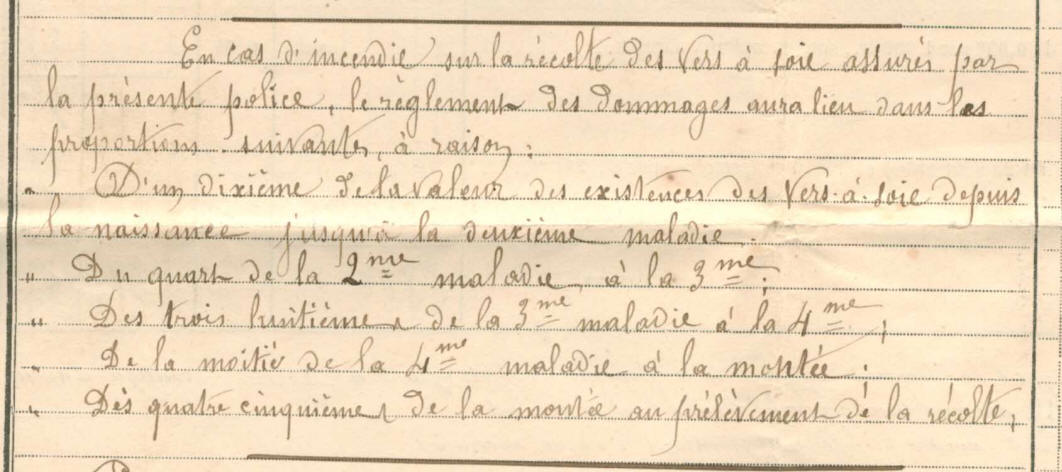 En cas d'incendie sur la récolte des Vers à soie assurés par
la présente police, le règlement des dommages aura lieu dans les
proportions suivantes, à raison :
" D'un dixième de la valeur des existences des Vers-à-soie depuis
la naissance jusqu'à la deuxième maladie.
" Du quart de la 2me maladie à la 3me ;
" Des trois huitièmes de la 3me maladie à la 4me ;
" De la moitié de la 4me maladie à la montée.
" Dès quatre cinquièmes de la montée au prélèvement de la récolte,